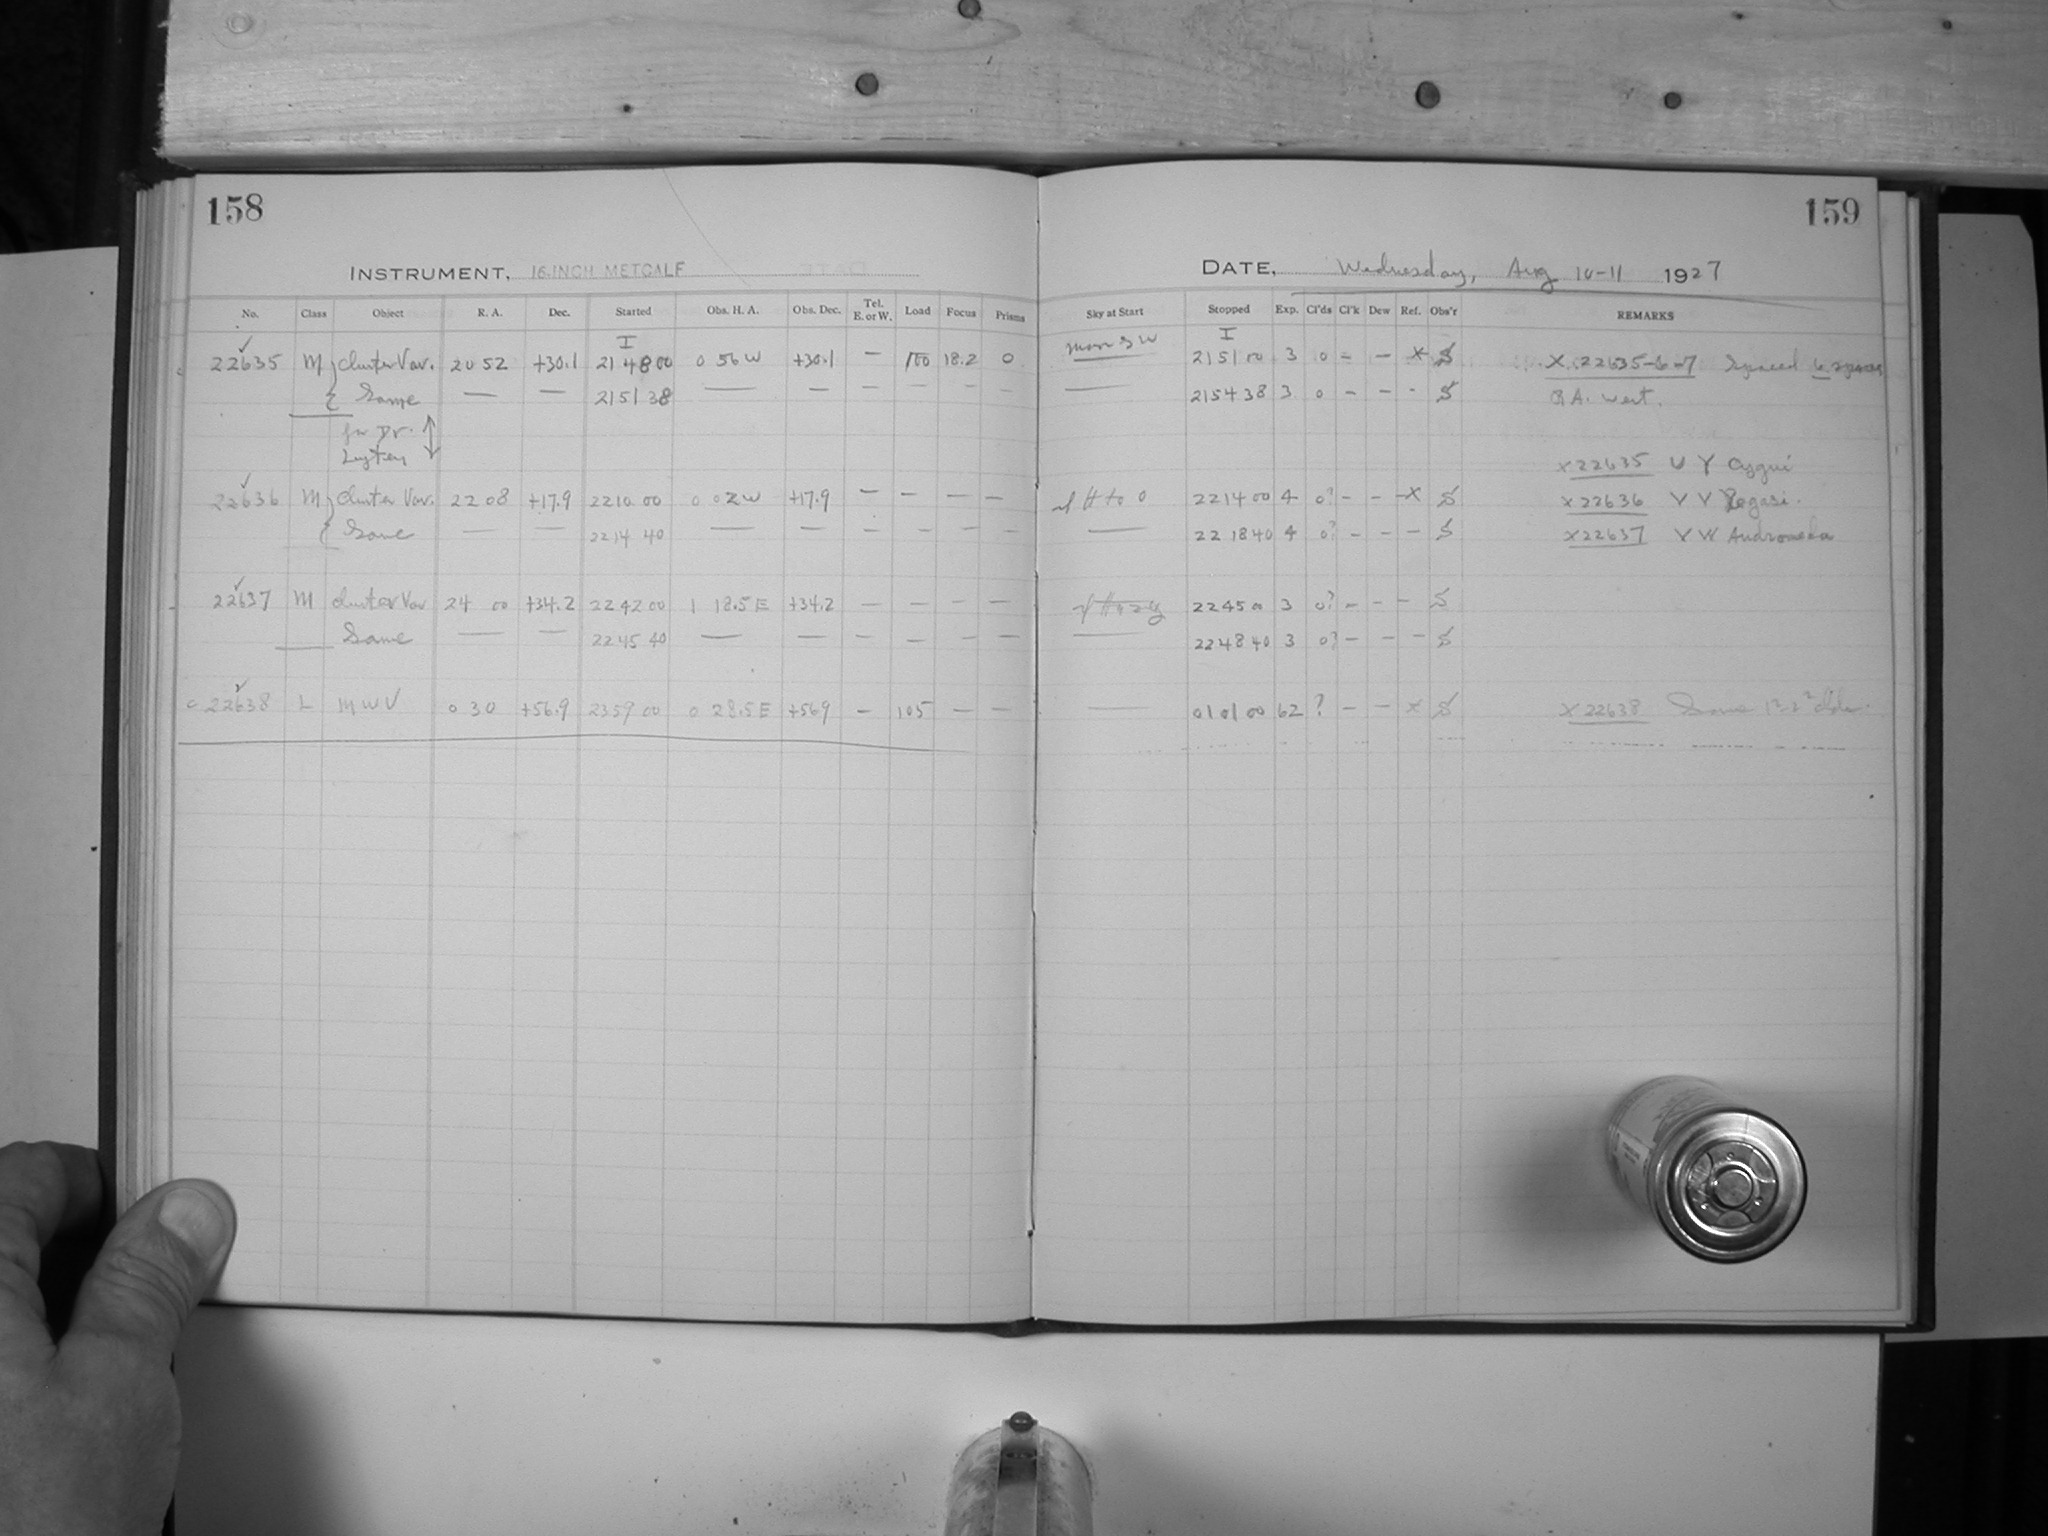 158
159
INSTRUMENT, 16-INCH METCALF
DATE, Wednesday, Aug 10-11 1927
No. Class Object R. A. Dec. Started Obs. H. A. Obs. Dec. Tel. E. or W. Load Focus Prisms Sky at Start Stopped Exp. Cl'ds Cl'k Dew Ref. Obs'r REMARKS
I I
22635 M Cluster Var. 20 52 +30.1 21 48 00 0 56 W +30.1 — 100 18.2 0 Moon SW 21 51 00 3 0 – — X S X 22635-6-7 Spaced 6 spaces
Same — — 21 51 38 — — — — — — — 21 54 38 3 0 – – - S R A. West.
for Dr.
Luyten X 22635 U Y Cygni
22636 M Cluster Var. 22 08 +17.9 22 10 00 0 02 W +17.9 — — — — 22 14 00 4 0? – – X S X 22636 V V Pegasi.
Same — — 22 14 40 — — — — — — — 22 18 40 4 0? – – – S X 22637 V W Andromeda
22637 M Cluster Var 24 00 +34.2 22 42 00 1 18.5 E +34.2 — — — — 22 45 00 3 0? – – – S
Same — — 22 45 40 — — — — — — — 22 48 40 3 0? – – – S
22638 L M W V 0 30 +56.9 23 59 00 0 28.5 E +56.9 — 105 — — — 01 01 00 62 ? – – X S X 22638 Some